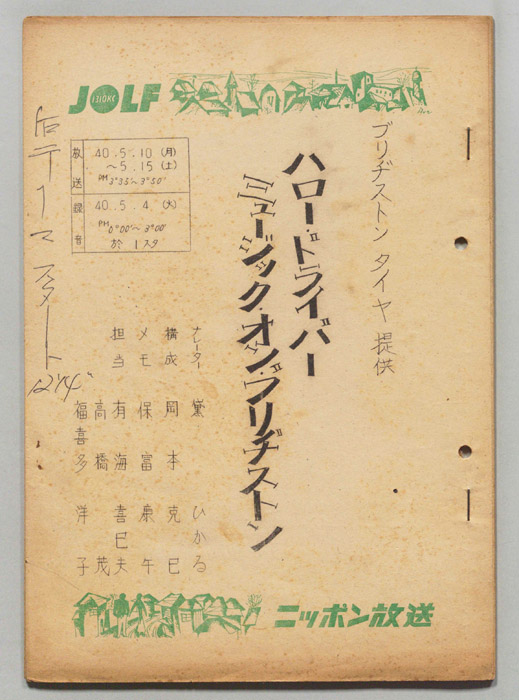 JOLF
1310KC
ブリヂストン タイヤ 提供
ハロー・ドライバー
ミュージック・オン・ブリヂストン
放送
40.5.10 (月)
〜5.15 (土)
PM 3°35'〜3°50'
録音
40.5.4 (火)
PM 0°00'〜3°00'
於 1スタ
ナレーター 黛 ひかる
構成 岡本 克巳
メモ 保富 康午
担当 有海 喜巳夫
高橋 茂
福喜多 洋子
テーマ スタート
12'14"
ニッポン放送